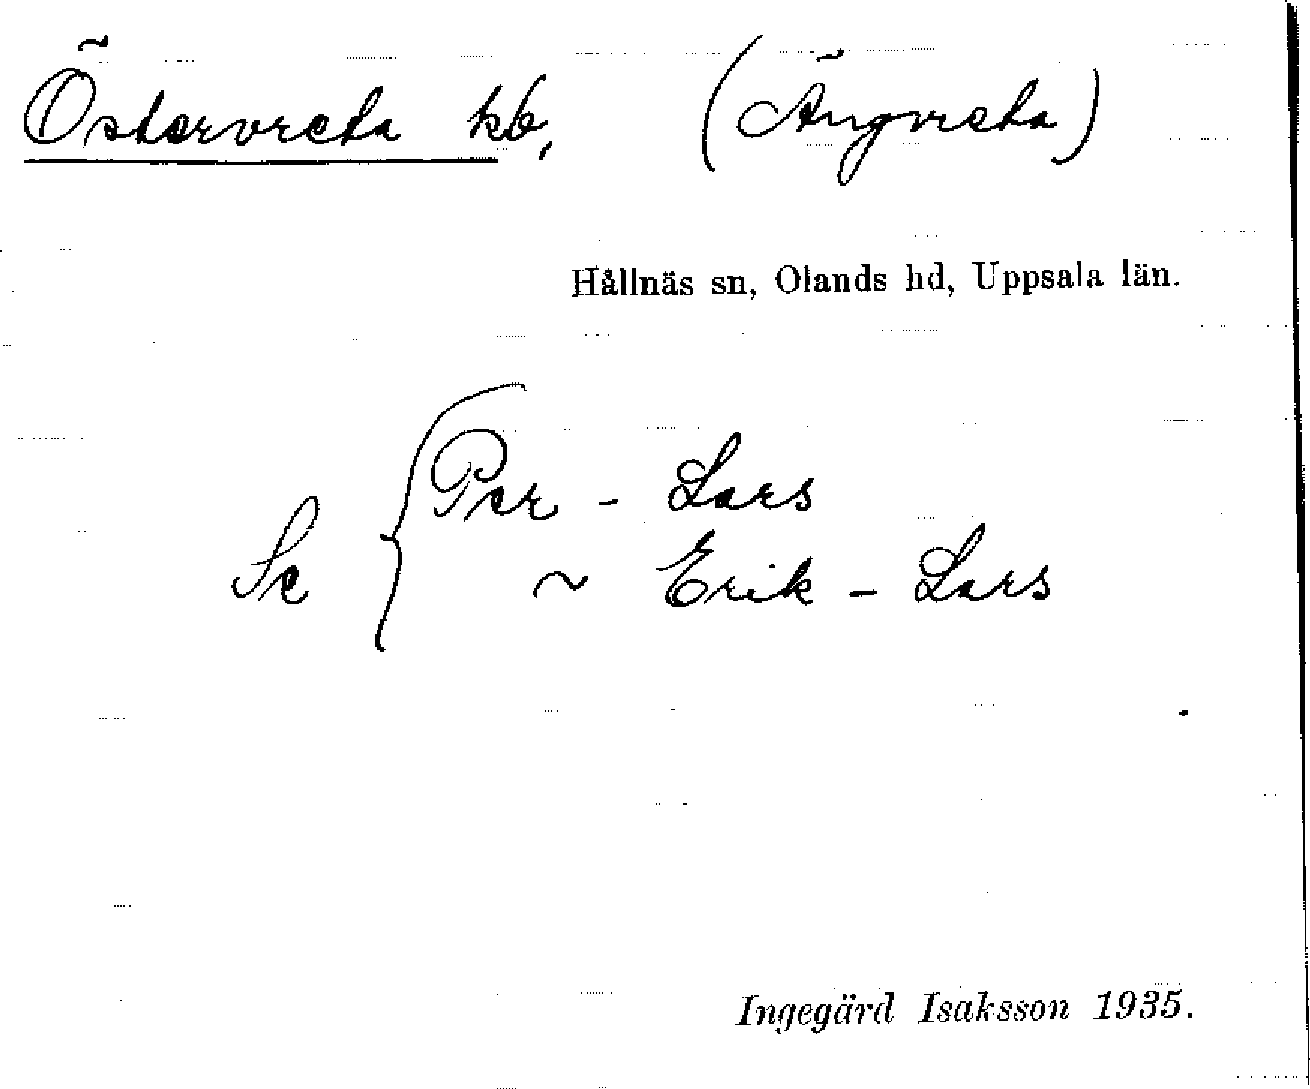 Östervreta kb, (Ängvreta)
Hållnäs sn, Olands hd, Uppsala län.
Se { Per - Lars
~ Erik - Lars
Ingegärd Isaksson 1935.